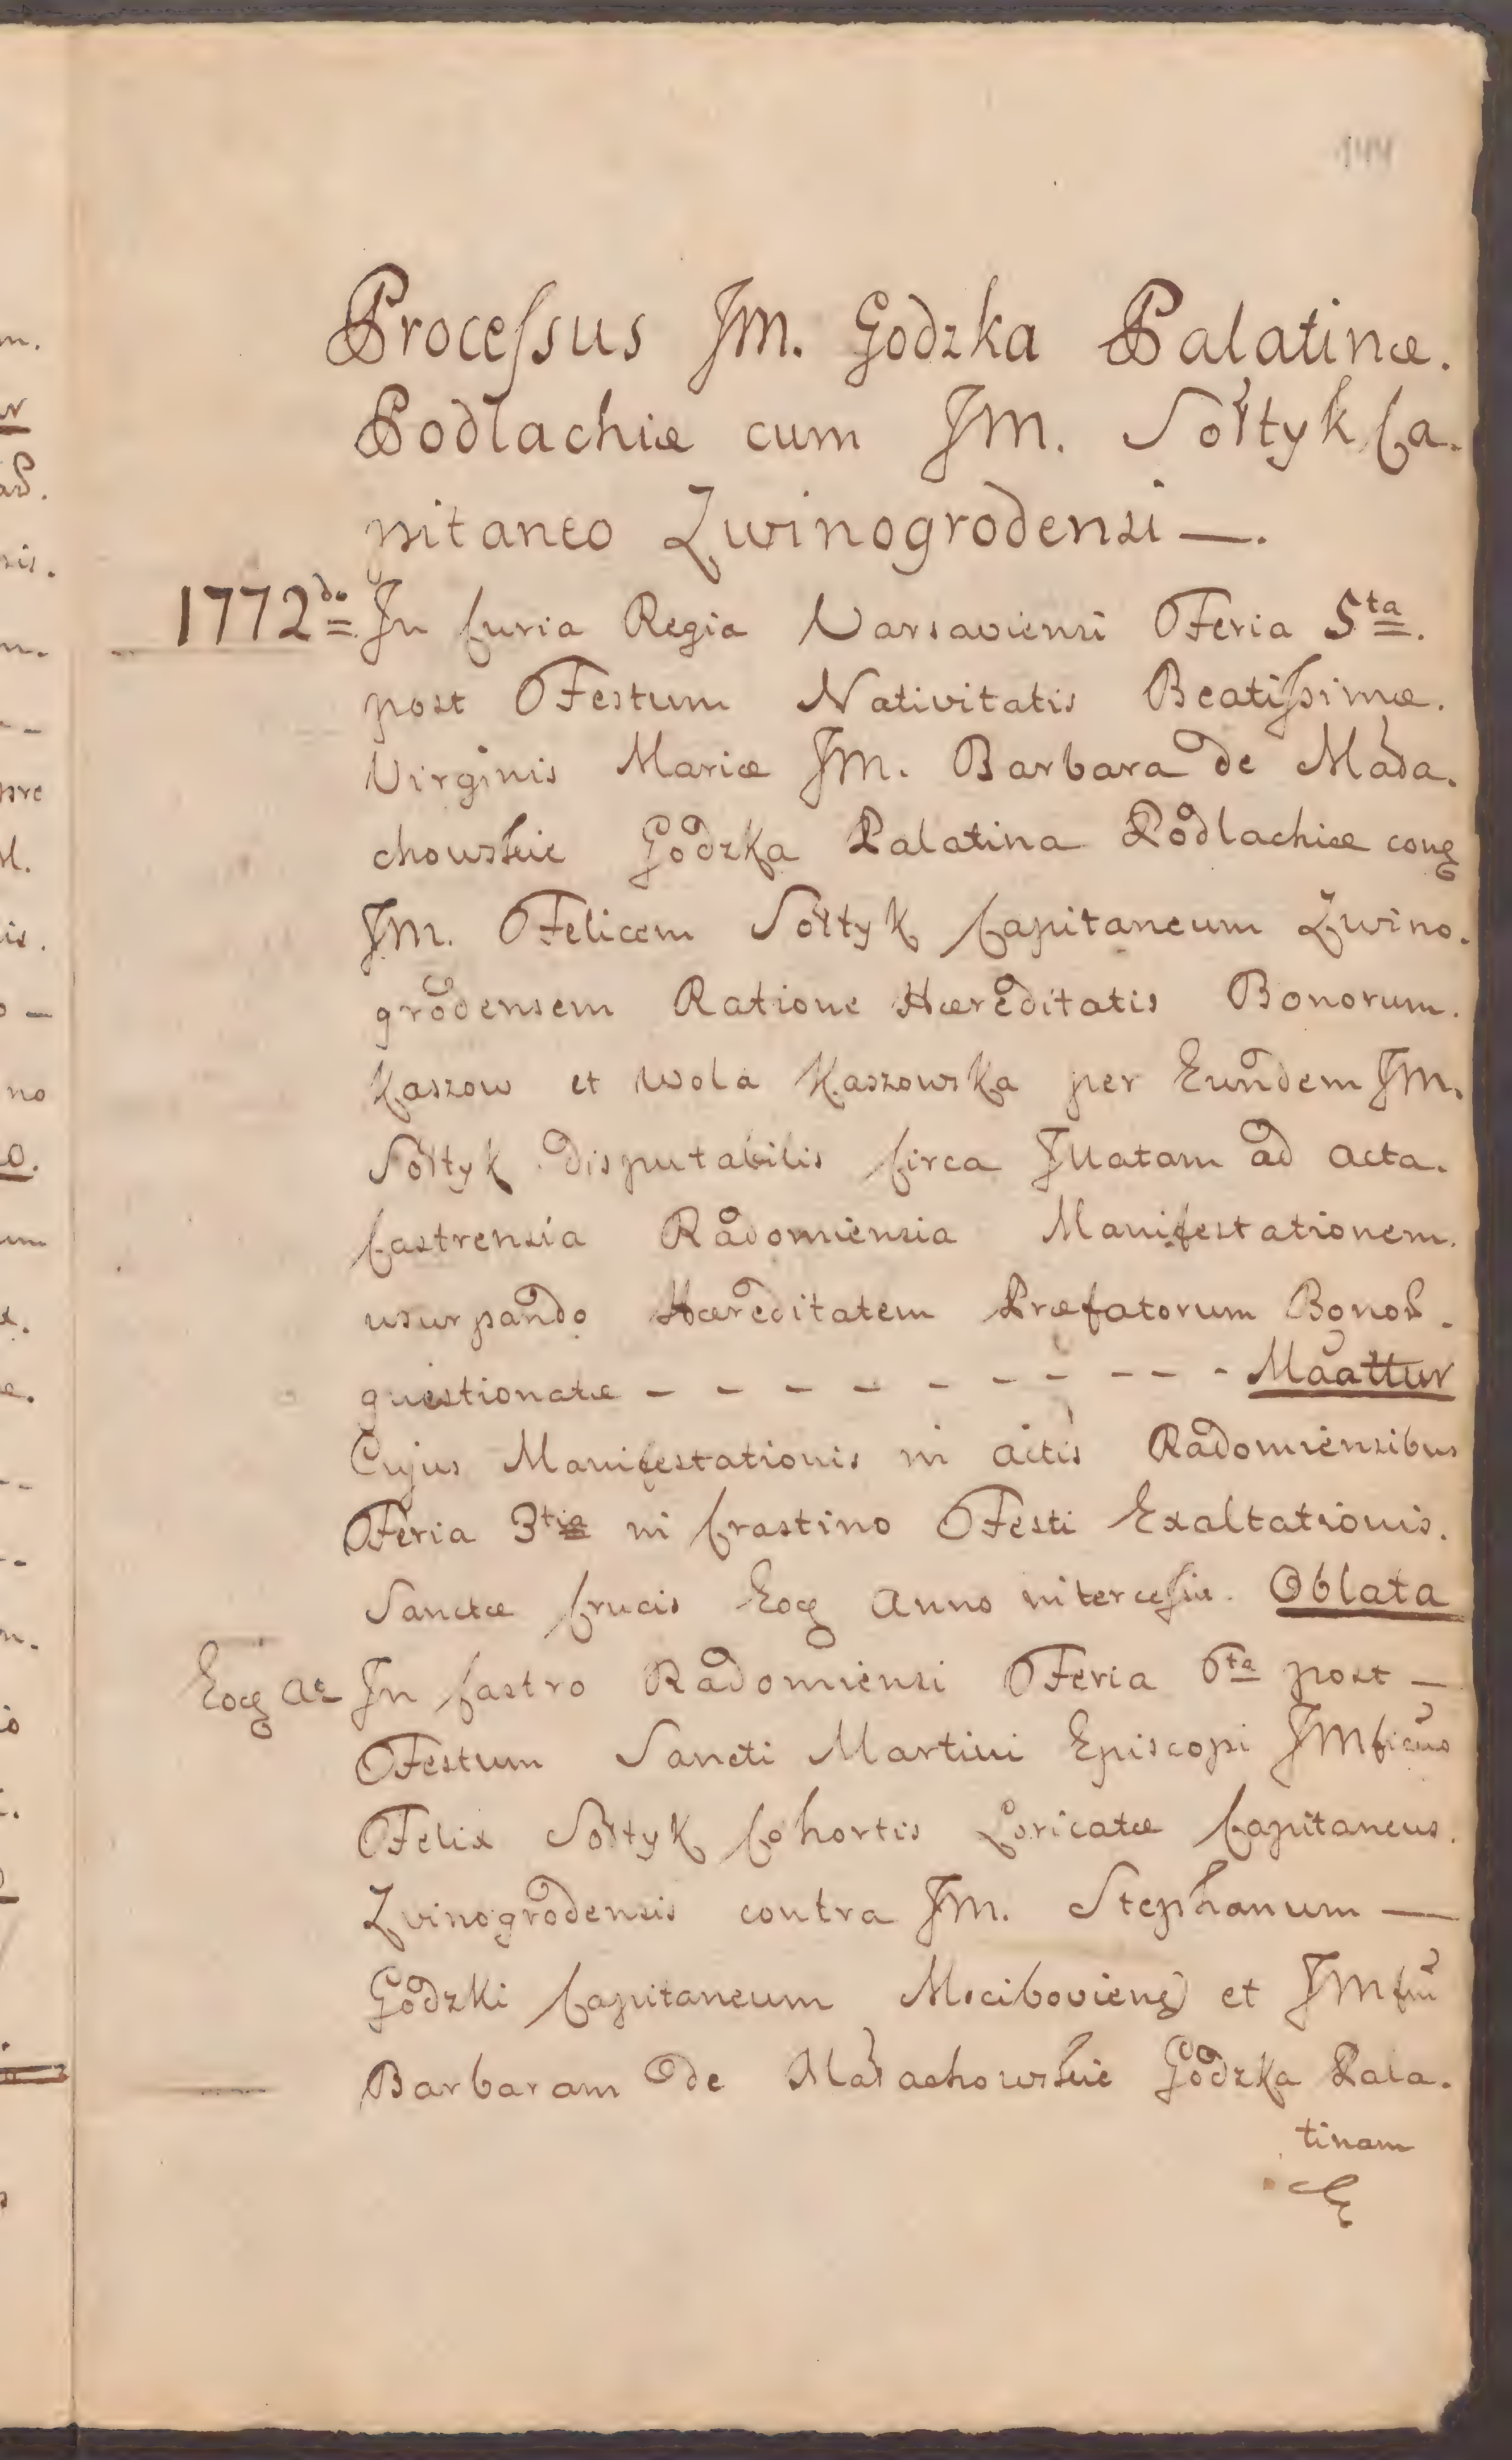 144
Processus JM. Godzka Palatinæ.
Podlachiæ cum JM. Sołtyk Ca.
pitaneo Zwinogrodensi —.
1772do In Curia Regia Varsaviensi Feria 5ta.
post Festum Nativitatis Beatissimæ.
Virginis Mariæ JM. Barbara de Mała.
chowskie Godzka Palatina Podlachiæ conq
JM. Felicem Sołtyk Capitaneum Zwino.
grodensem Ratione Hæreditatis Bonorum.
Kaszow et Wola Kaszowska per Eundem JM.
Sołtyk disputabilis Circa Illatam ad acta.
Castrensia Radomiensia Manifestationem.
usurpando Hæreditatem Præfatorum Bonor.
questionatæ - - - - - - - - - Maattur
Cujus Manifestationis in actis Radomiensibus
Feria 3tia in Crastino Festi Exaltationis.
Sanctæ Crucis Eoq Anno intercessiæ. Oblata
Eoq Ao In Castro Radomiensi Feria 6ta post —
Festum Sancti Martini Episcopi JMficus
Felix Sołtyk Cohortis Loricatæ Capitaneus.
Zvinogrodensis contra JM. Stephanum —
Godzki Capitaneum Msciboviens et JMfm
Barbaram de Małachowskie Godzka Pala.
tinam